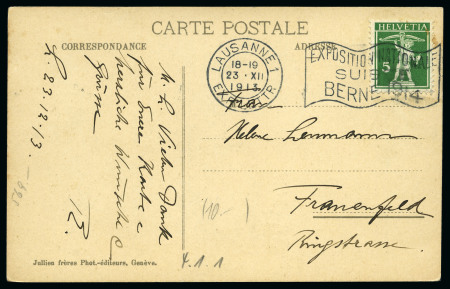 CARTE POSTALE
CORRESPONDANCE
ADRESSE
LAUSANNE 1
18-19
23 · XII
1913
EXP. LETTR.
EXPOSITION NATIONALE
SUISSE
BERNE 1914
HELVETIA
5
L. 23.12.13.
M. L. Vielen Dank
für Deine Karte &
herzliche Wünsche &
Grüsse
Frau
Helene
Frauenfeld
Ringstrasse.
(10.-)
4.1.1
Jullien frères Phot.-éditeurs, Genève.